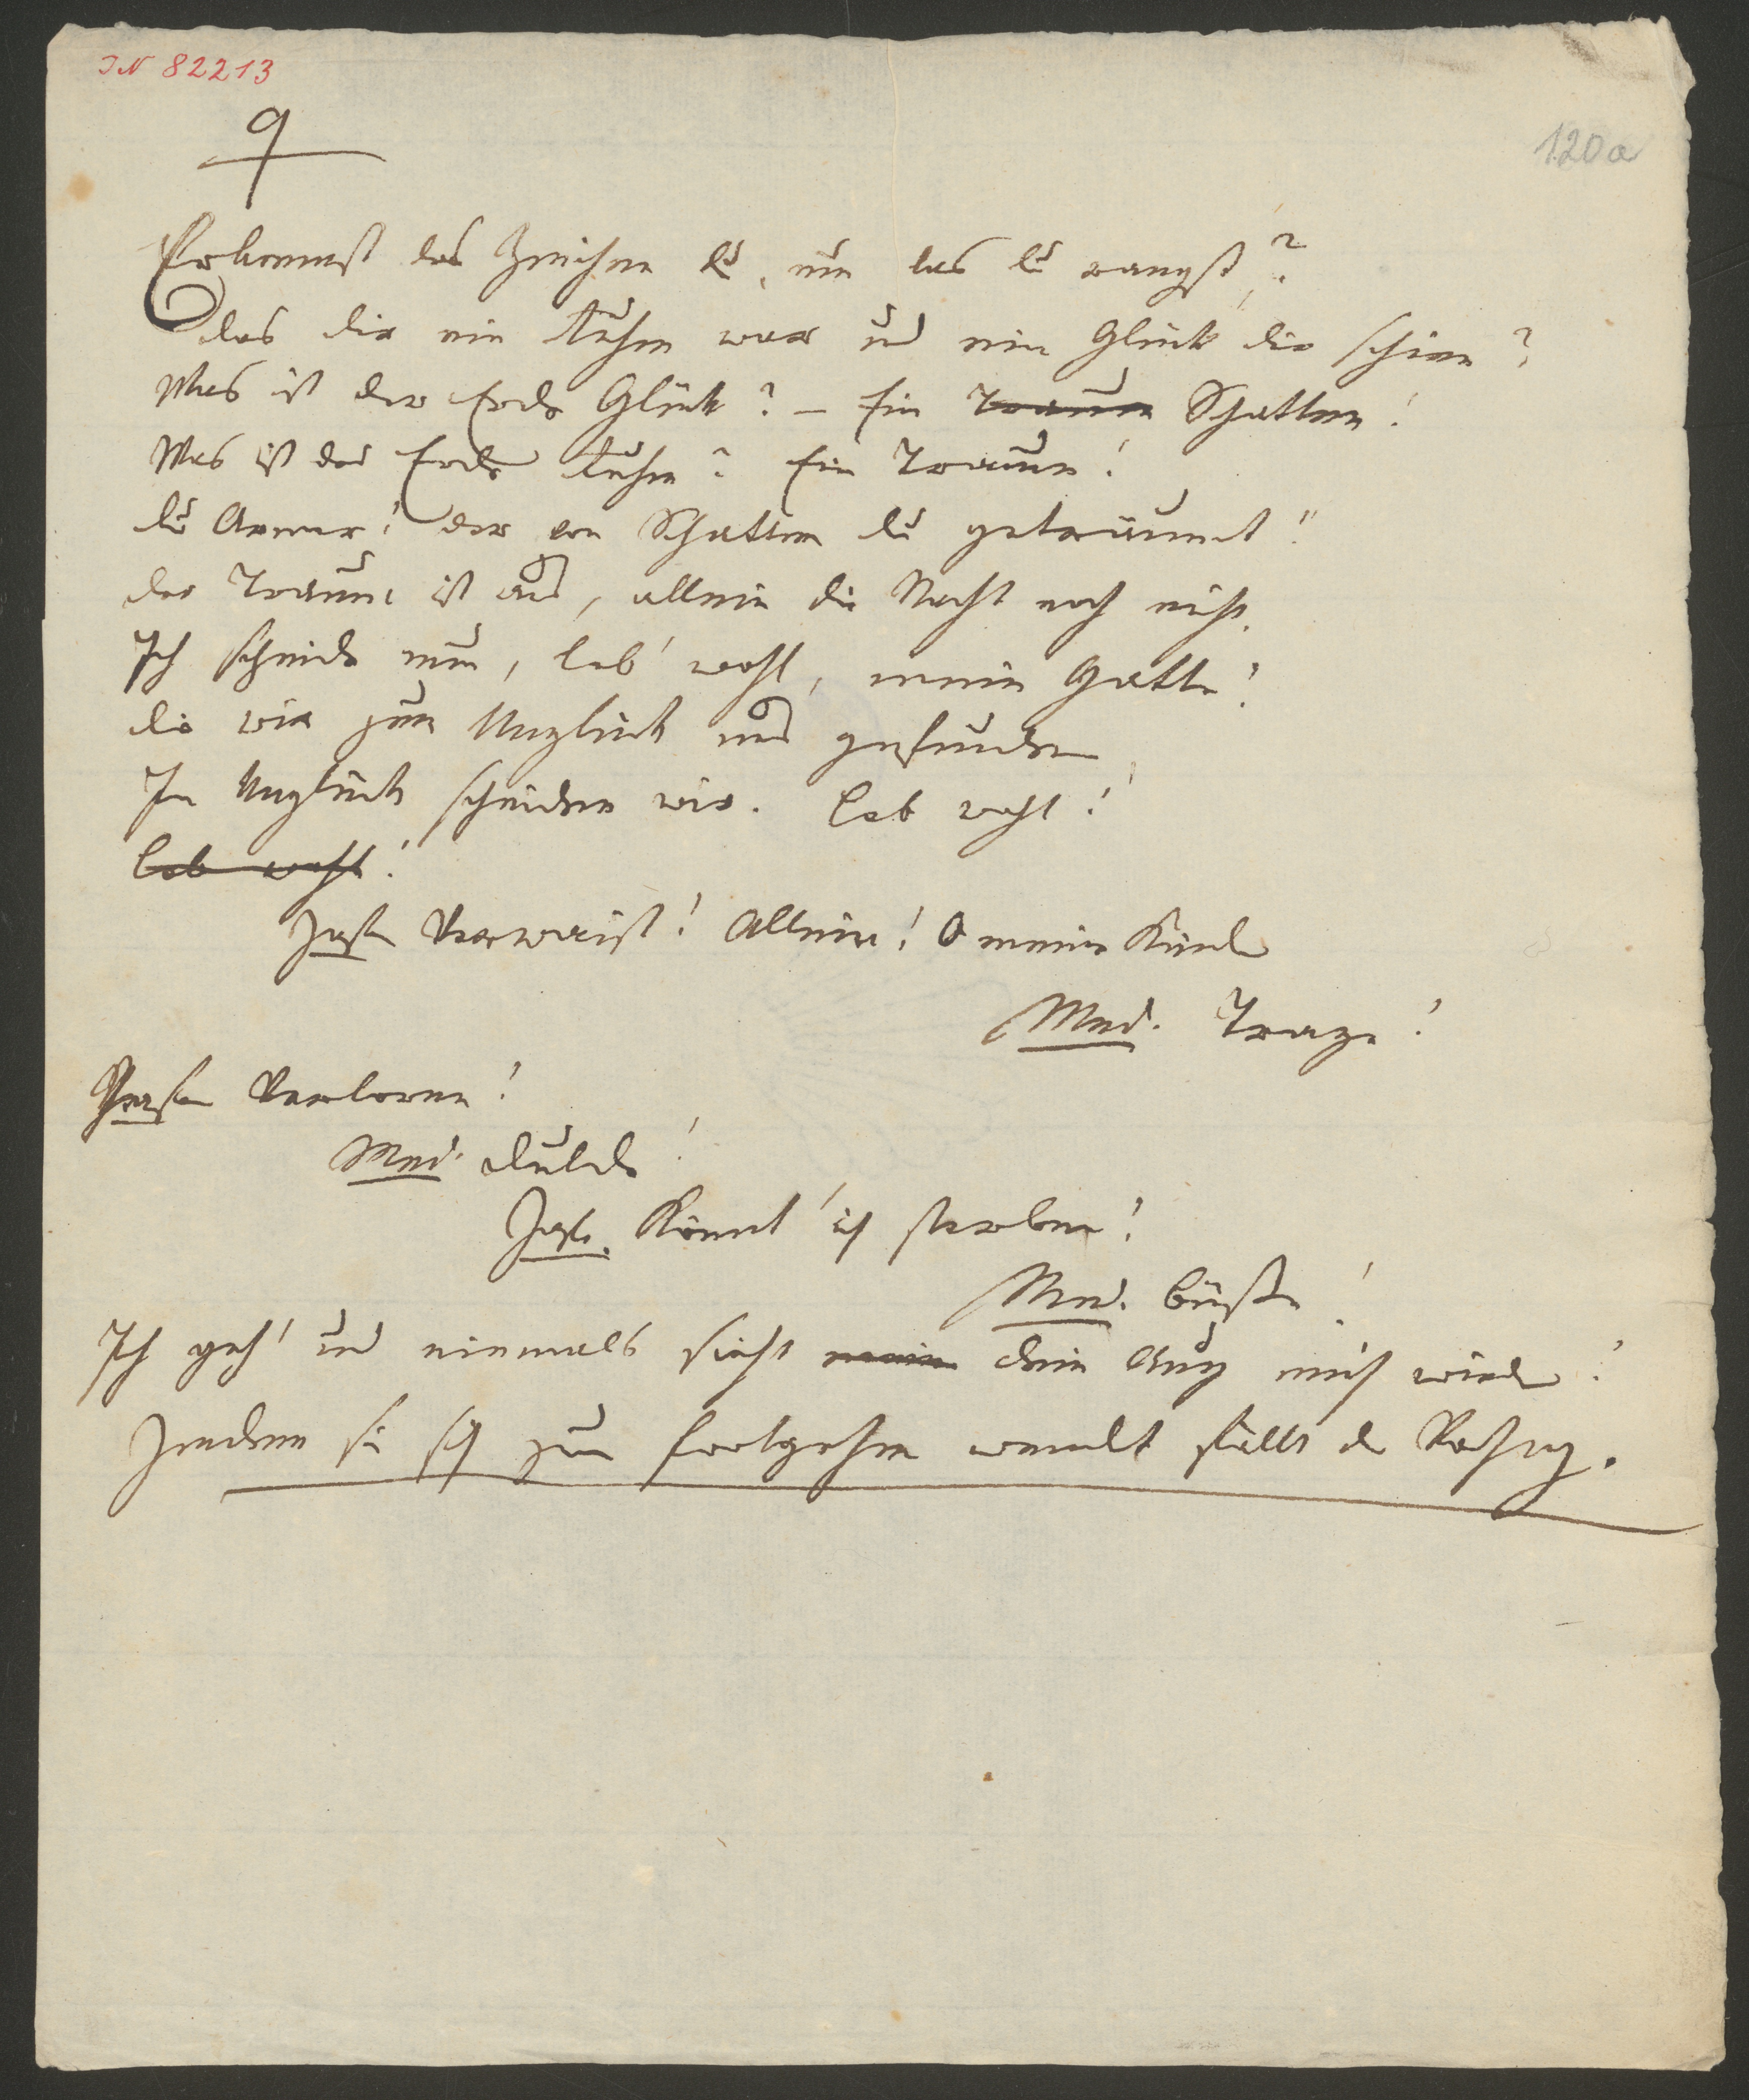 IN 82213
9
120a
Erkennst das Zeichen du, um das du rangst?
Das dir ein Ruhm war und ein Glück dir schien?
Was ist der Erde Glück? – Ein Traum Schatten!
Was ist der Erde Ruhm? Ein Traum!
Du Armer! der von Schatten du geträumt!
Der Traum ist aus, allein die Nacht noch nicht.
Ich scheide nun, leb' wohl, mein Gatte!
Die wir zum Unglück uns gefunden
Im Unglück scheiden wir. Leb wohl!
Leb wohl!
Jason Verwaist! Allein! O meine Kinder
Med. Trage!
Jason Verloren!
Med. Dulde!
Jason. Könnt' ich sterben!
Med. Büße!
Ich geh' und niemals sieht mein dein Aug mich wieder!
Indem sie sich zum Fortgehen wendet fällt der Vorhang.